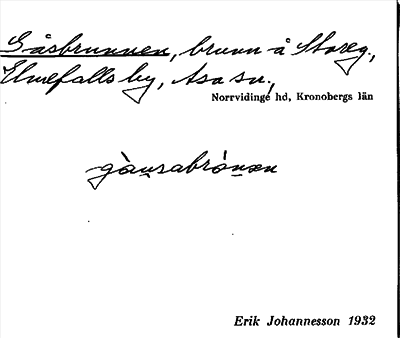 Gåsbrunnen, brunn å Storeg.,
Elmefalls by, Asa sn.,
Norrvidinge hd, Kronobergs län
gàu̯sabró̀u̯nən
Erik Johannesson 1932